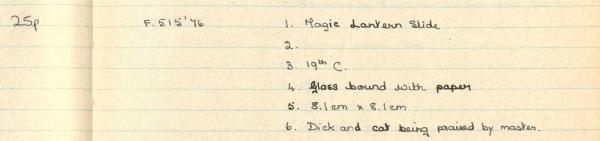 25p F.515'76 1. Magic Lantern Slide
2.
3. 19th C.
4. Glass bound with paper
5. 8.1cm x 8.1cm
6. Dick and cat being praised by master.